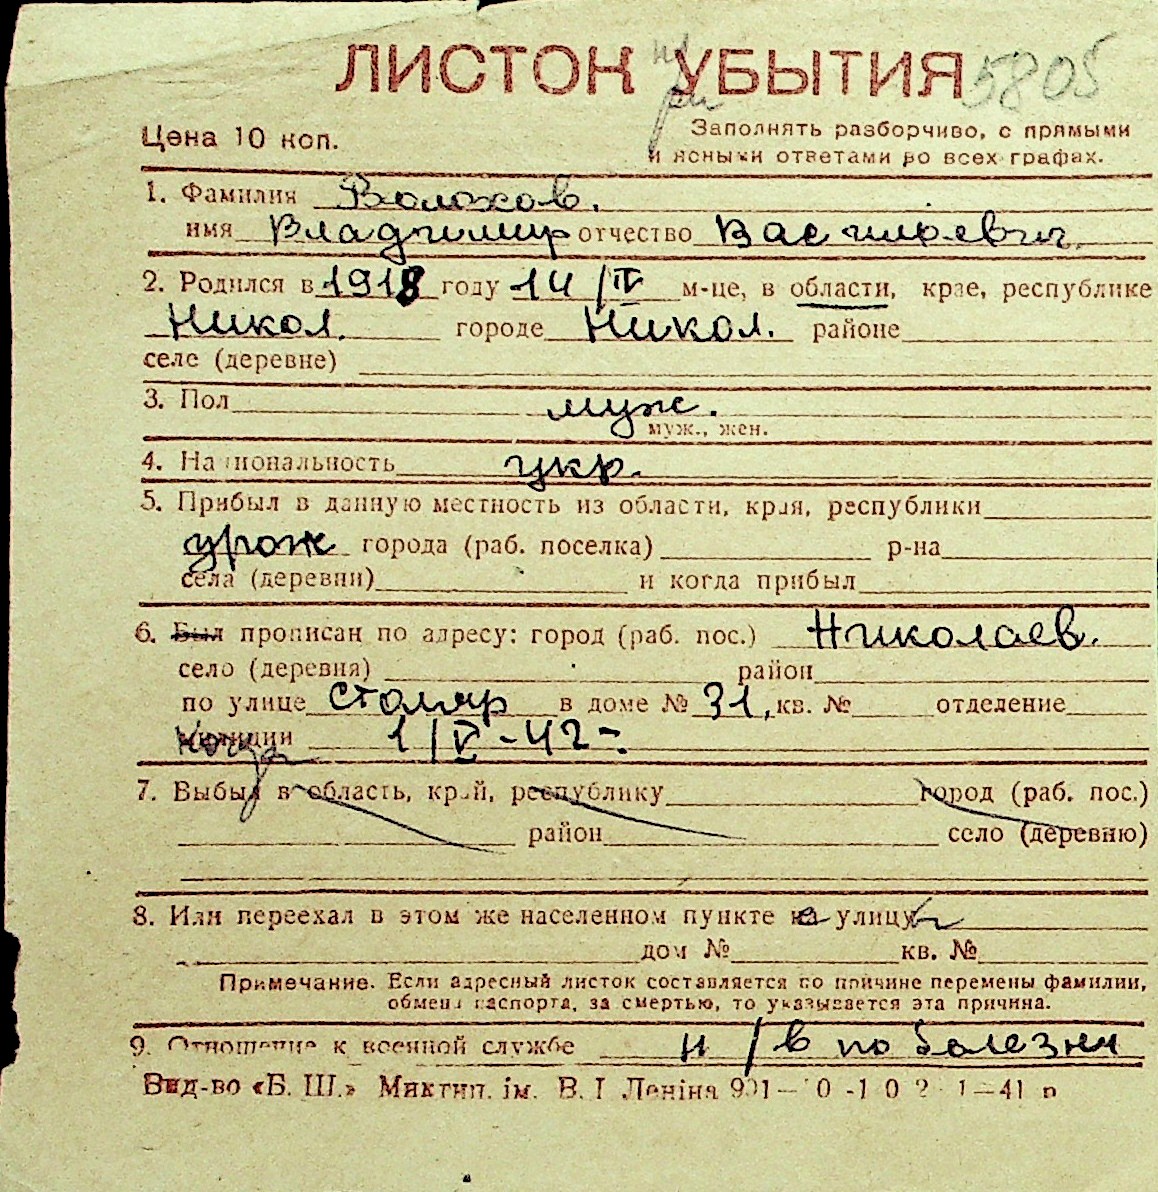 ЛИСТОК УБЫТИЯ 5805
при
Цена 10 коп.
Заполнять разборчиво, с прямыми
и ясными ответами во всех графах.
1. Фамилия Волохов.
имя Владимир отчество Васильевич.
2. Родился в 1918 году 14/IV м-це, в области, крае, республике
Никол. городе Никол. районе
селе (деревне)
3. Пол муж.
муж., жен.
4. Национальность укр.
5. Прибыл в данную местность из области, края, республики
урож города (раб. поселка) р-на
села (деревни) и когда прибыл
6. Был прописан по адресу: город (раб. пос.) Николаев.
село (деревня) район
по улице Столяр в доме № 31, кв. № отделение
милиции 1/V-42-.
когда
7. Выбыл в область, край, республику город (раб. пос.)
район село (деревню)
8. Или переехал в этом же населенном пункте на улицу
дом № кв. №
Примечание. Если адресный листок составляется по причине перемены фамилии,
обмена паспорта, за смертью, то указывается эта причина.
9. Отношение к военной службе н/в по болезни
Вид-во «Б. Ш.» Миктип. ім. В. І Леніна